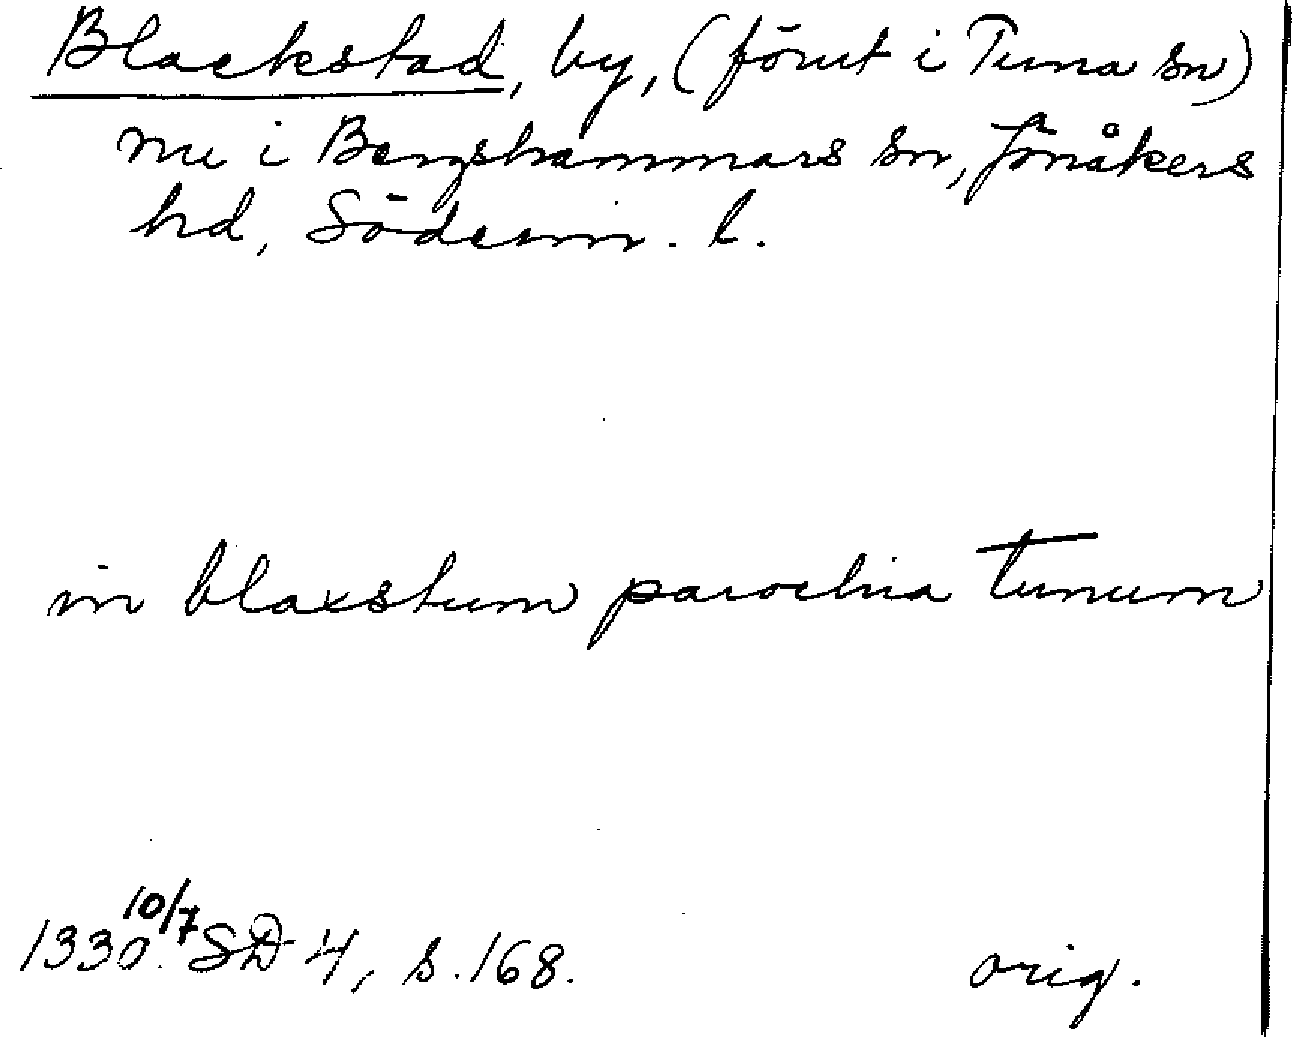 Blackstad, by, (förut i Tuna sn)
nu i Bergshammars sn, Jönåkers
hd, Söderm. l.
in blaxstum parochia Tunum
1330 10/7 SD 4, s. 168. orig.